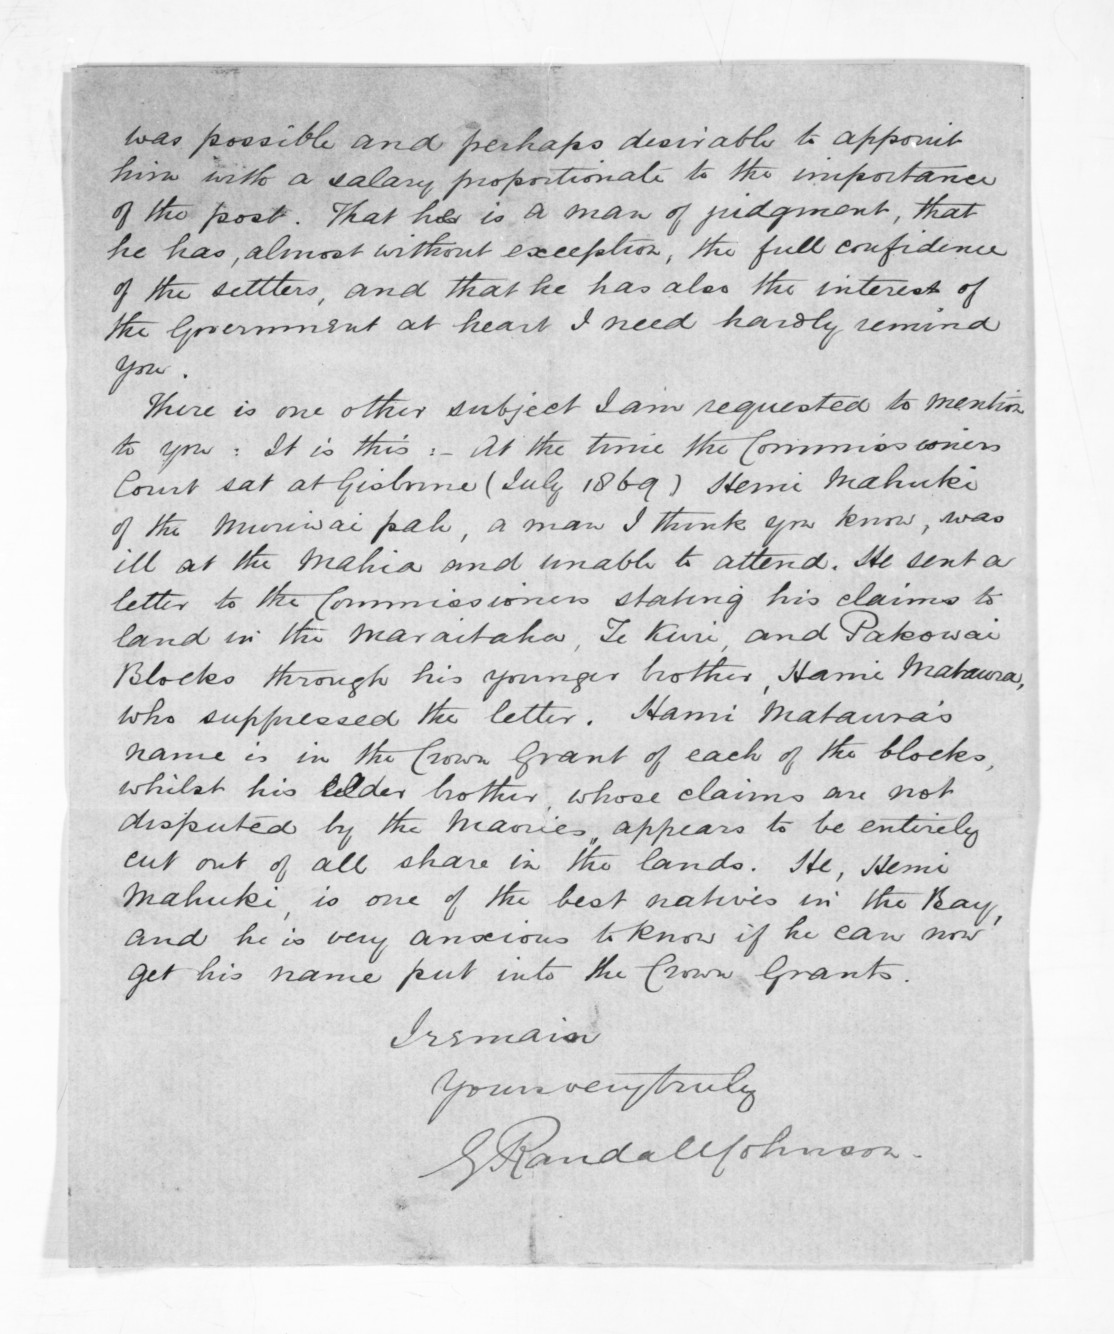 was possible and perhaps desirable to appoint
him with a salary proportionate to the importance
of the post. That he is a man of judgment, that
he has, almost without exception, the full confidence
of the settlers, and that he has also the interest of
the Government at heart I need hardly remind
you.
There is one other subject I am requested to mention
to you : It is this :- At the time the Commissioners
Court sat at Gisbrne (July 1869) Hemi Mahuki
of the Muriwai pah, a man I think you know, was
ill at the Mahia and unable to attend. He sent a
letter to the Commissioners stating his claims to
land in the Maraitaha, Te Kuri, and Pakowai
Blocks through his younger brother, Hami Mataura,
who suppressed the letter. Hami Mataura's
name is in the Crown Grant of each of the blocks,
whilst his elder brother, whose claims are not
disputed by the Maories, appears to be entirely
cut out of all share in the lands. He, Hemi
Mahuki, is one of the best natives in the Bay,
and he is very anxious to know if he can now
get his name put into the Crown Grants.
I remain
Yours very truly
G Randall Johnson.